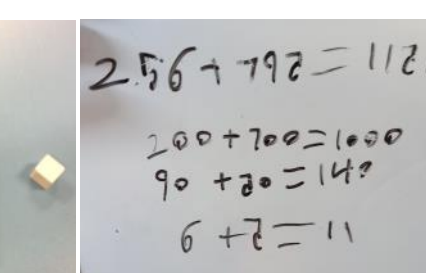 256+792=112
200+700=1000
90+50=140
6+2=11